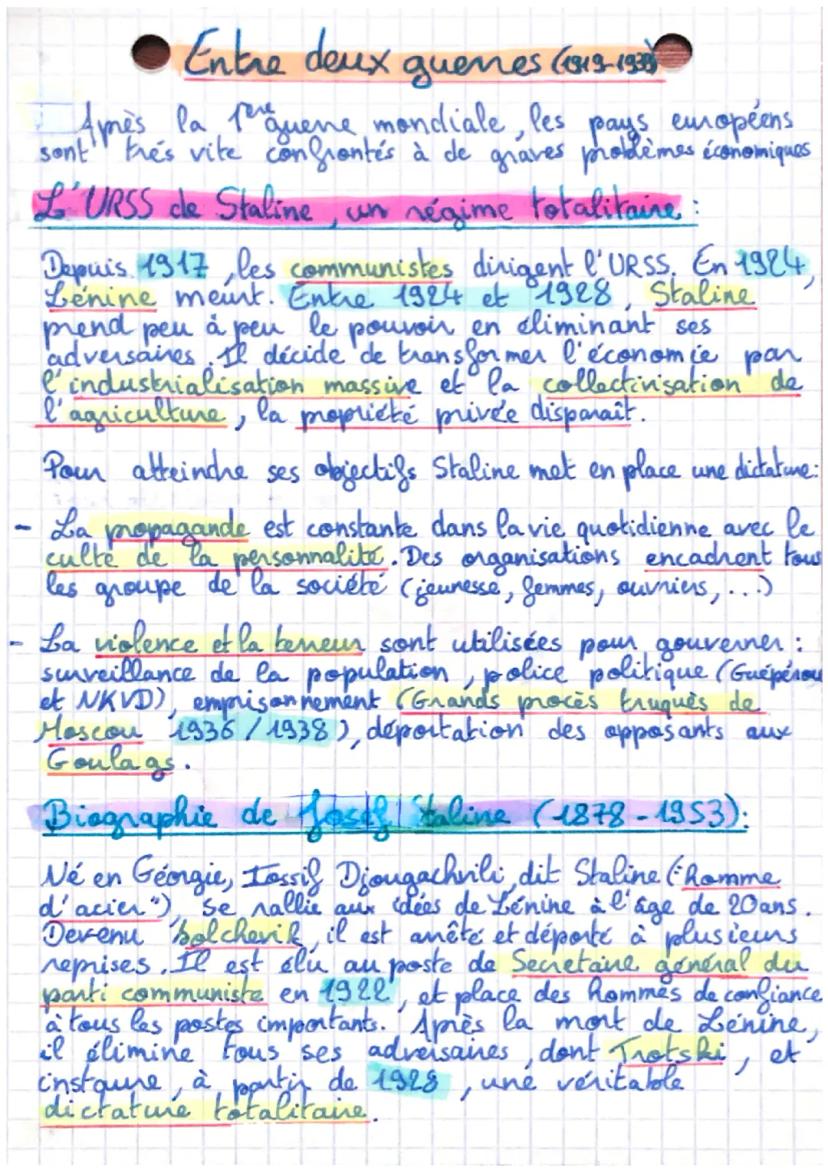 Entre deux guerres (1919-1939)
Après la 1ère guerre mondiale, les pays européens
sont trés vite confrontés à de graves problèmes économiques
L'URSS de Staline, un régime totalitaire :
Depuis 1917, les communistes dirigent l'URSS. En 1924,
Lénine meurt. Entre 1924 et 1928, Staline
prend peu à peu le pouvoir en éliminant ses
adversaires. Il décide de transformer l'économie par
l'industrialisation massive et la collectivisation de
l'agriculture, la propriété privée disparaît.
Pour atteindre ses objectifs Staline met en place une dictature:
- La propagande est constante dans la vie quotidienne avec le
culte de la personnalité. Des organisations encadrent tous
les groupe de la société (jeunesse, femmes, ouvriers, ...)
- La violence et la terreur sont utilisées pour gouverner :
surveillance de la population, police politique (Guépéou
et NKVD), emprisonnement (Grands procès truqués de
Moscou 1936 / 1938), déportation des opposants aux
Goulags.
Biographie de Josef Staline (1878-1953):
Né en Géorgie, Iossif Djougachvili, dit Staline ("homme
d'acier"), se rallie aux idées de Lénine à l'âge de 20 ans.
Devenu bolchevik, il est arrêté et déporté à plusieurs
reprises. Il est élu au poste de Secretaire général du
parti communiste en 1922, et place des hommes de confiance
à tous les postes importants. Après la mort de Lénine,
il élimine tous ses adversaires, dont Trotski, et
instaure, à partir de 1928, une véritable
dictature totalitaire.